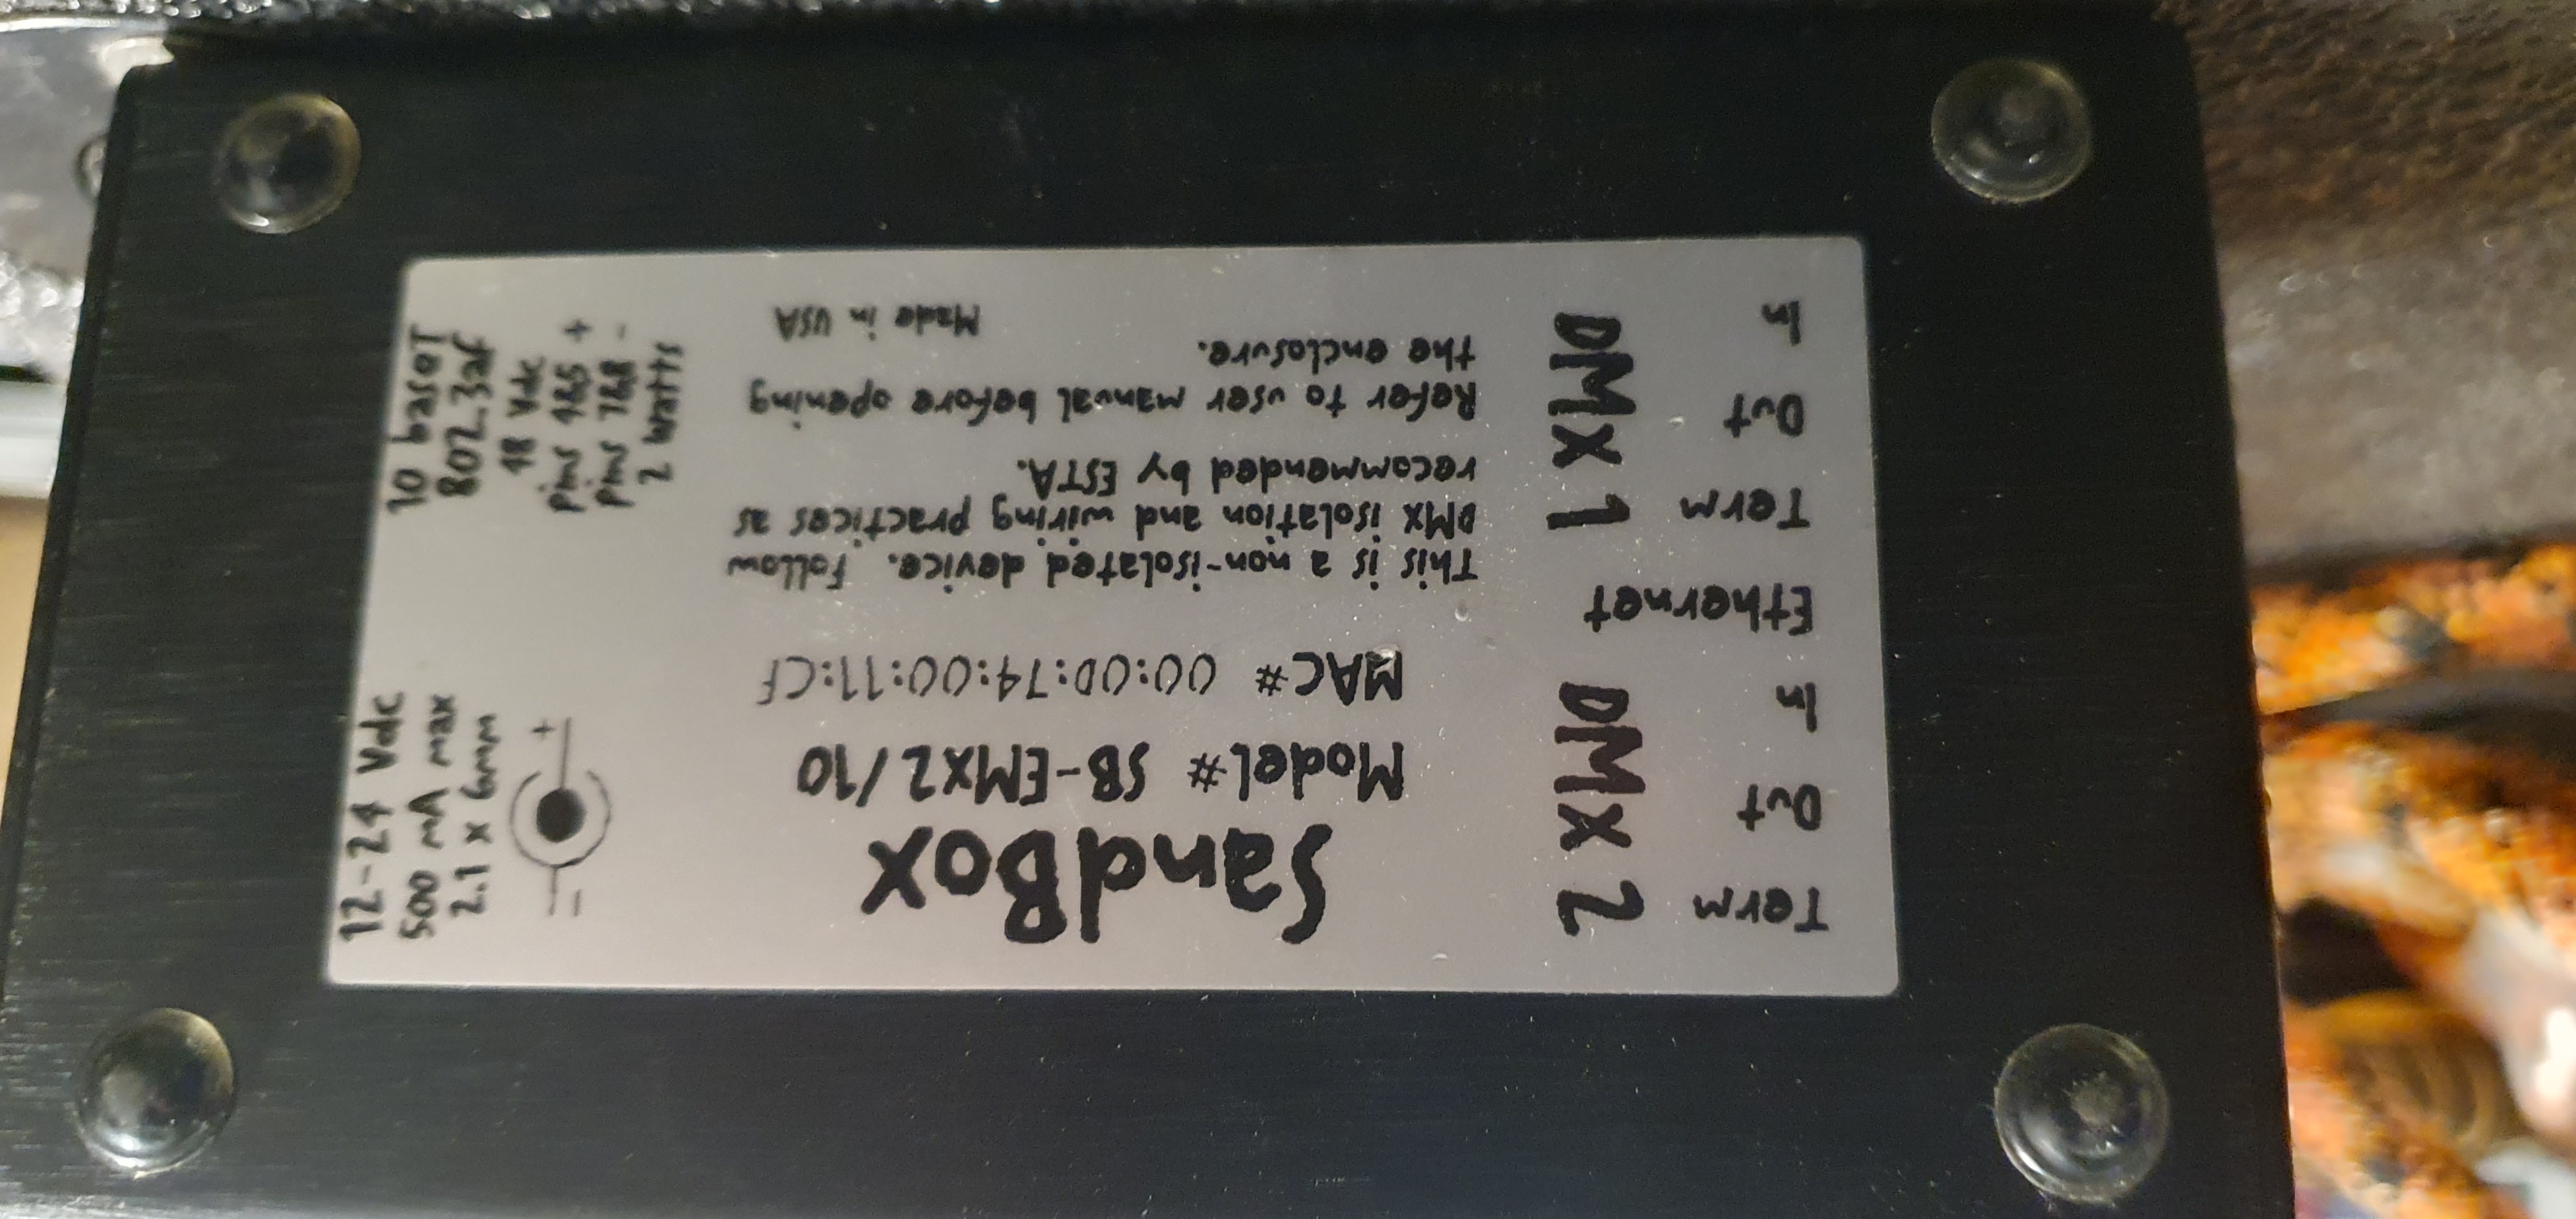 SandBox
Model# SB-EMX2/10
MAC# 00:0D:74:00:11:CF
This is a non-isolated device. Follow
DMX isolation and wiring practices as
recommended by ESTA.
Refer to user manual before opening
the enclosure.
Made in USA
Term
Out
In
DMX 2
Ethernet
Term
Out
In
DMX 1
12-24 Vdc
500 mA max
2.1 x 6mm
- +
10 baseT
802.3af
48 Vdc
pins 4&5 +
pins 7&8 -
2 watts